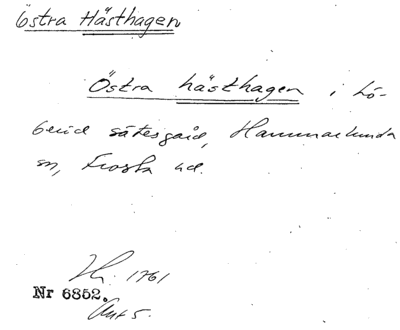 Östra Hästhagen
Östra hästhagen i Lö-
beröd sätesgård, Hammarlunda
sn, Frosta hd.
1761
Nr 6852.